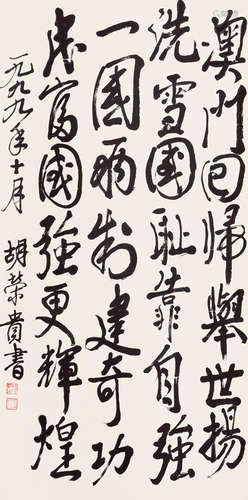 澳门回歸舉世揚
洗雪國耻靠自強
一國兩制建奇功
民富國強更輝煌
一九九九年十月 胡榮貴書